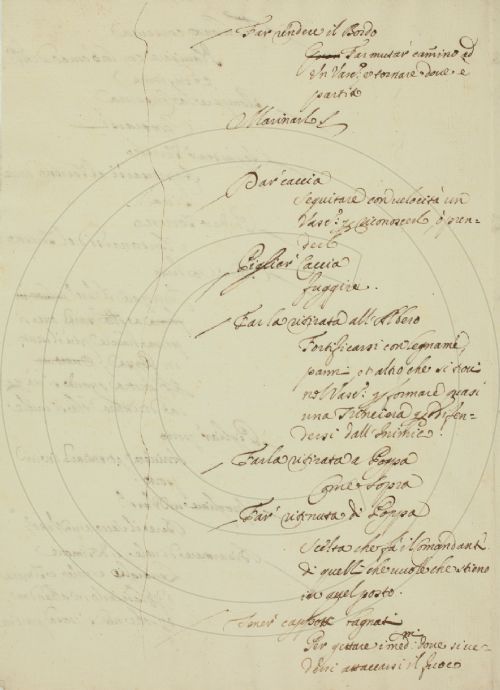 Far rendere il Bordo
Far mutar camino ad
un Vasc.º e tornare dove è
partita
Marinari
Dar caccia
Seguitare con velocità un
Vasc.º p riconoscerlo ò pren-
derlo
Pigliar Caccia
fuggire.
Far la ritirata all'Albero
Fortificarsi con legname,
panni et altro che si trovi
nel Vasc.º p formare quasi
una Trinciera p difen-
dersi dall'Inimico.
Far la ritirata a Poppa
Come sopra
Far ritirata di Poppa
Scelta che fà il Comandante
di quelli che vuole che stieno
in quel posto.
Tener cappotti bagnati
Per gettare imed.m dove si ve-
desse attaccarsi il fuoco